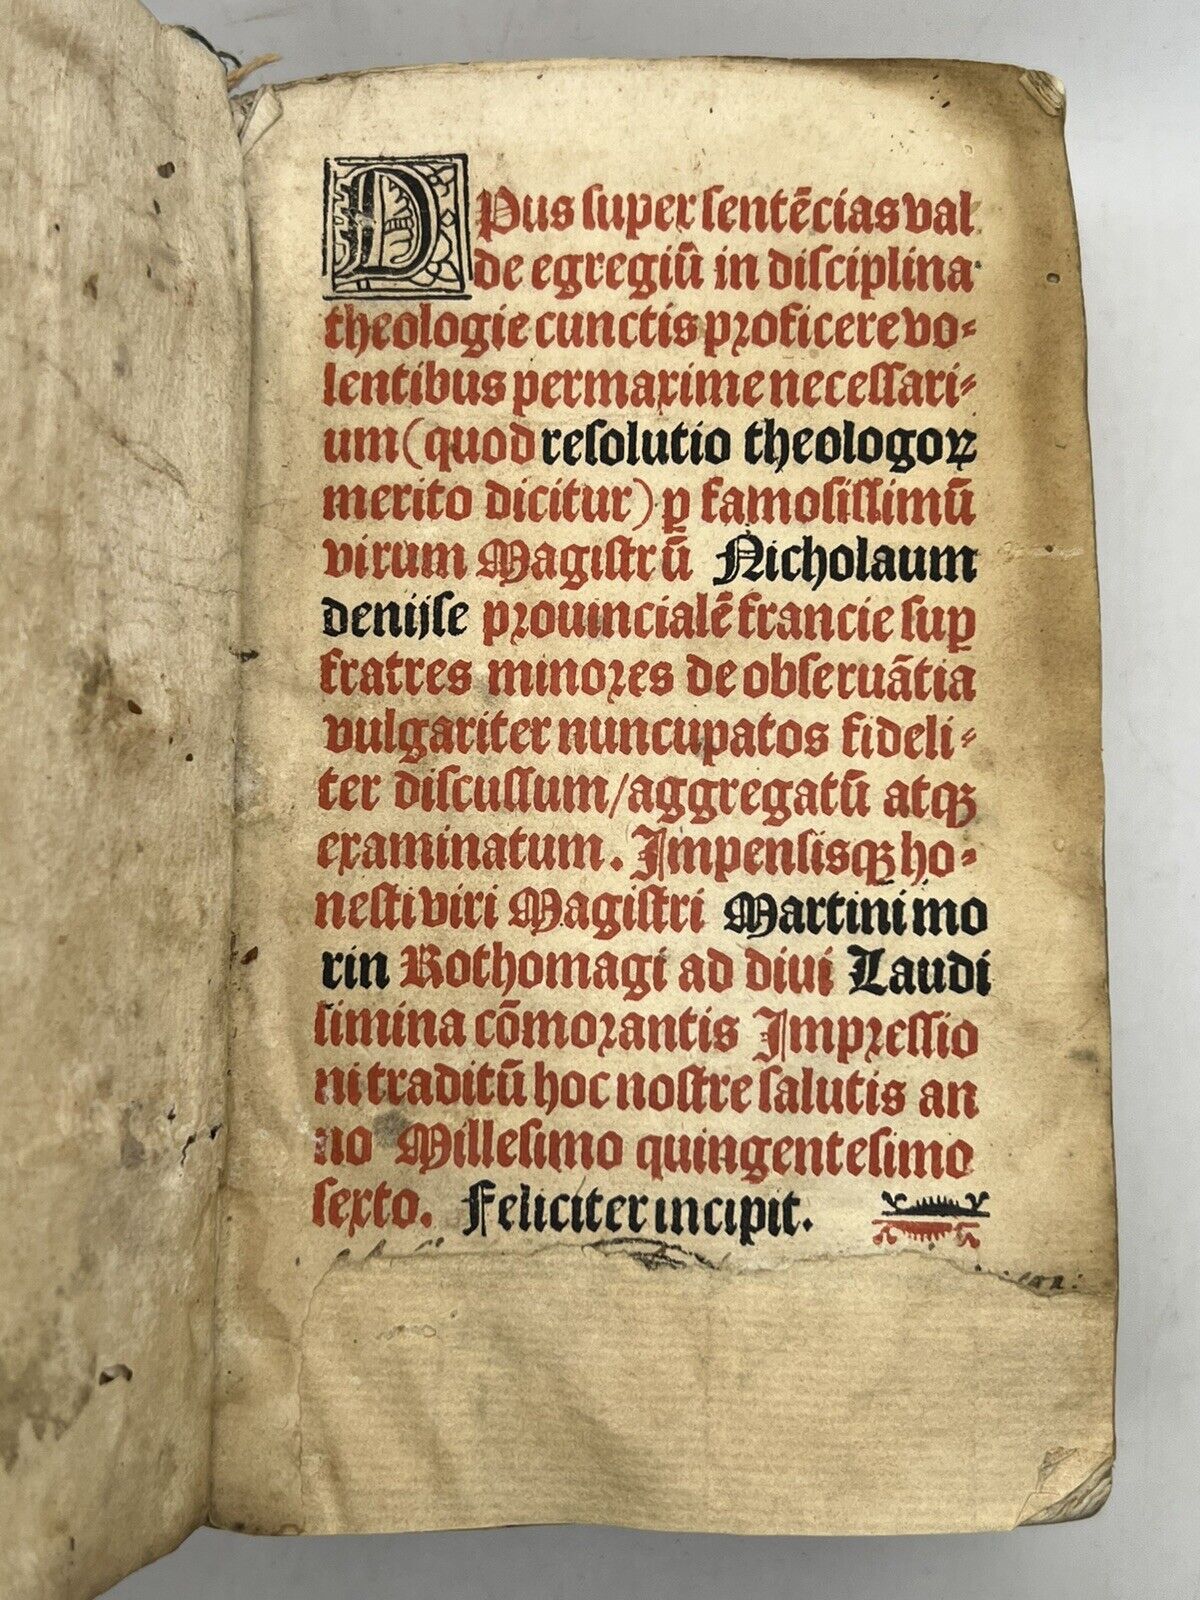 OPus super sentēcias val
de egregiū in disciplina
theologie cunctis proficere vo⸗
lentibus permaxime necessari⸗
um (quod resolutio theologoꝝ
merito dicitur) ꝑ famosissimū
virum Magistrū Nicholaum
denijse prouincialē francie suꝑ
fratres minores de obseruātia
vulgariter nuncupatos fideli⸗
ter discussum/aggregatū atqꝫ
examinatum. Impensisqꝫ ho⸗
nesti viri Magistri Martini mo
rin Rothomagi ad diui Laudi
limina cōmorantis Impressio
ni traditū hoc nostre salutis an
no Millesimo quingentesimo
sexto. Feliciter incipit.